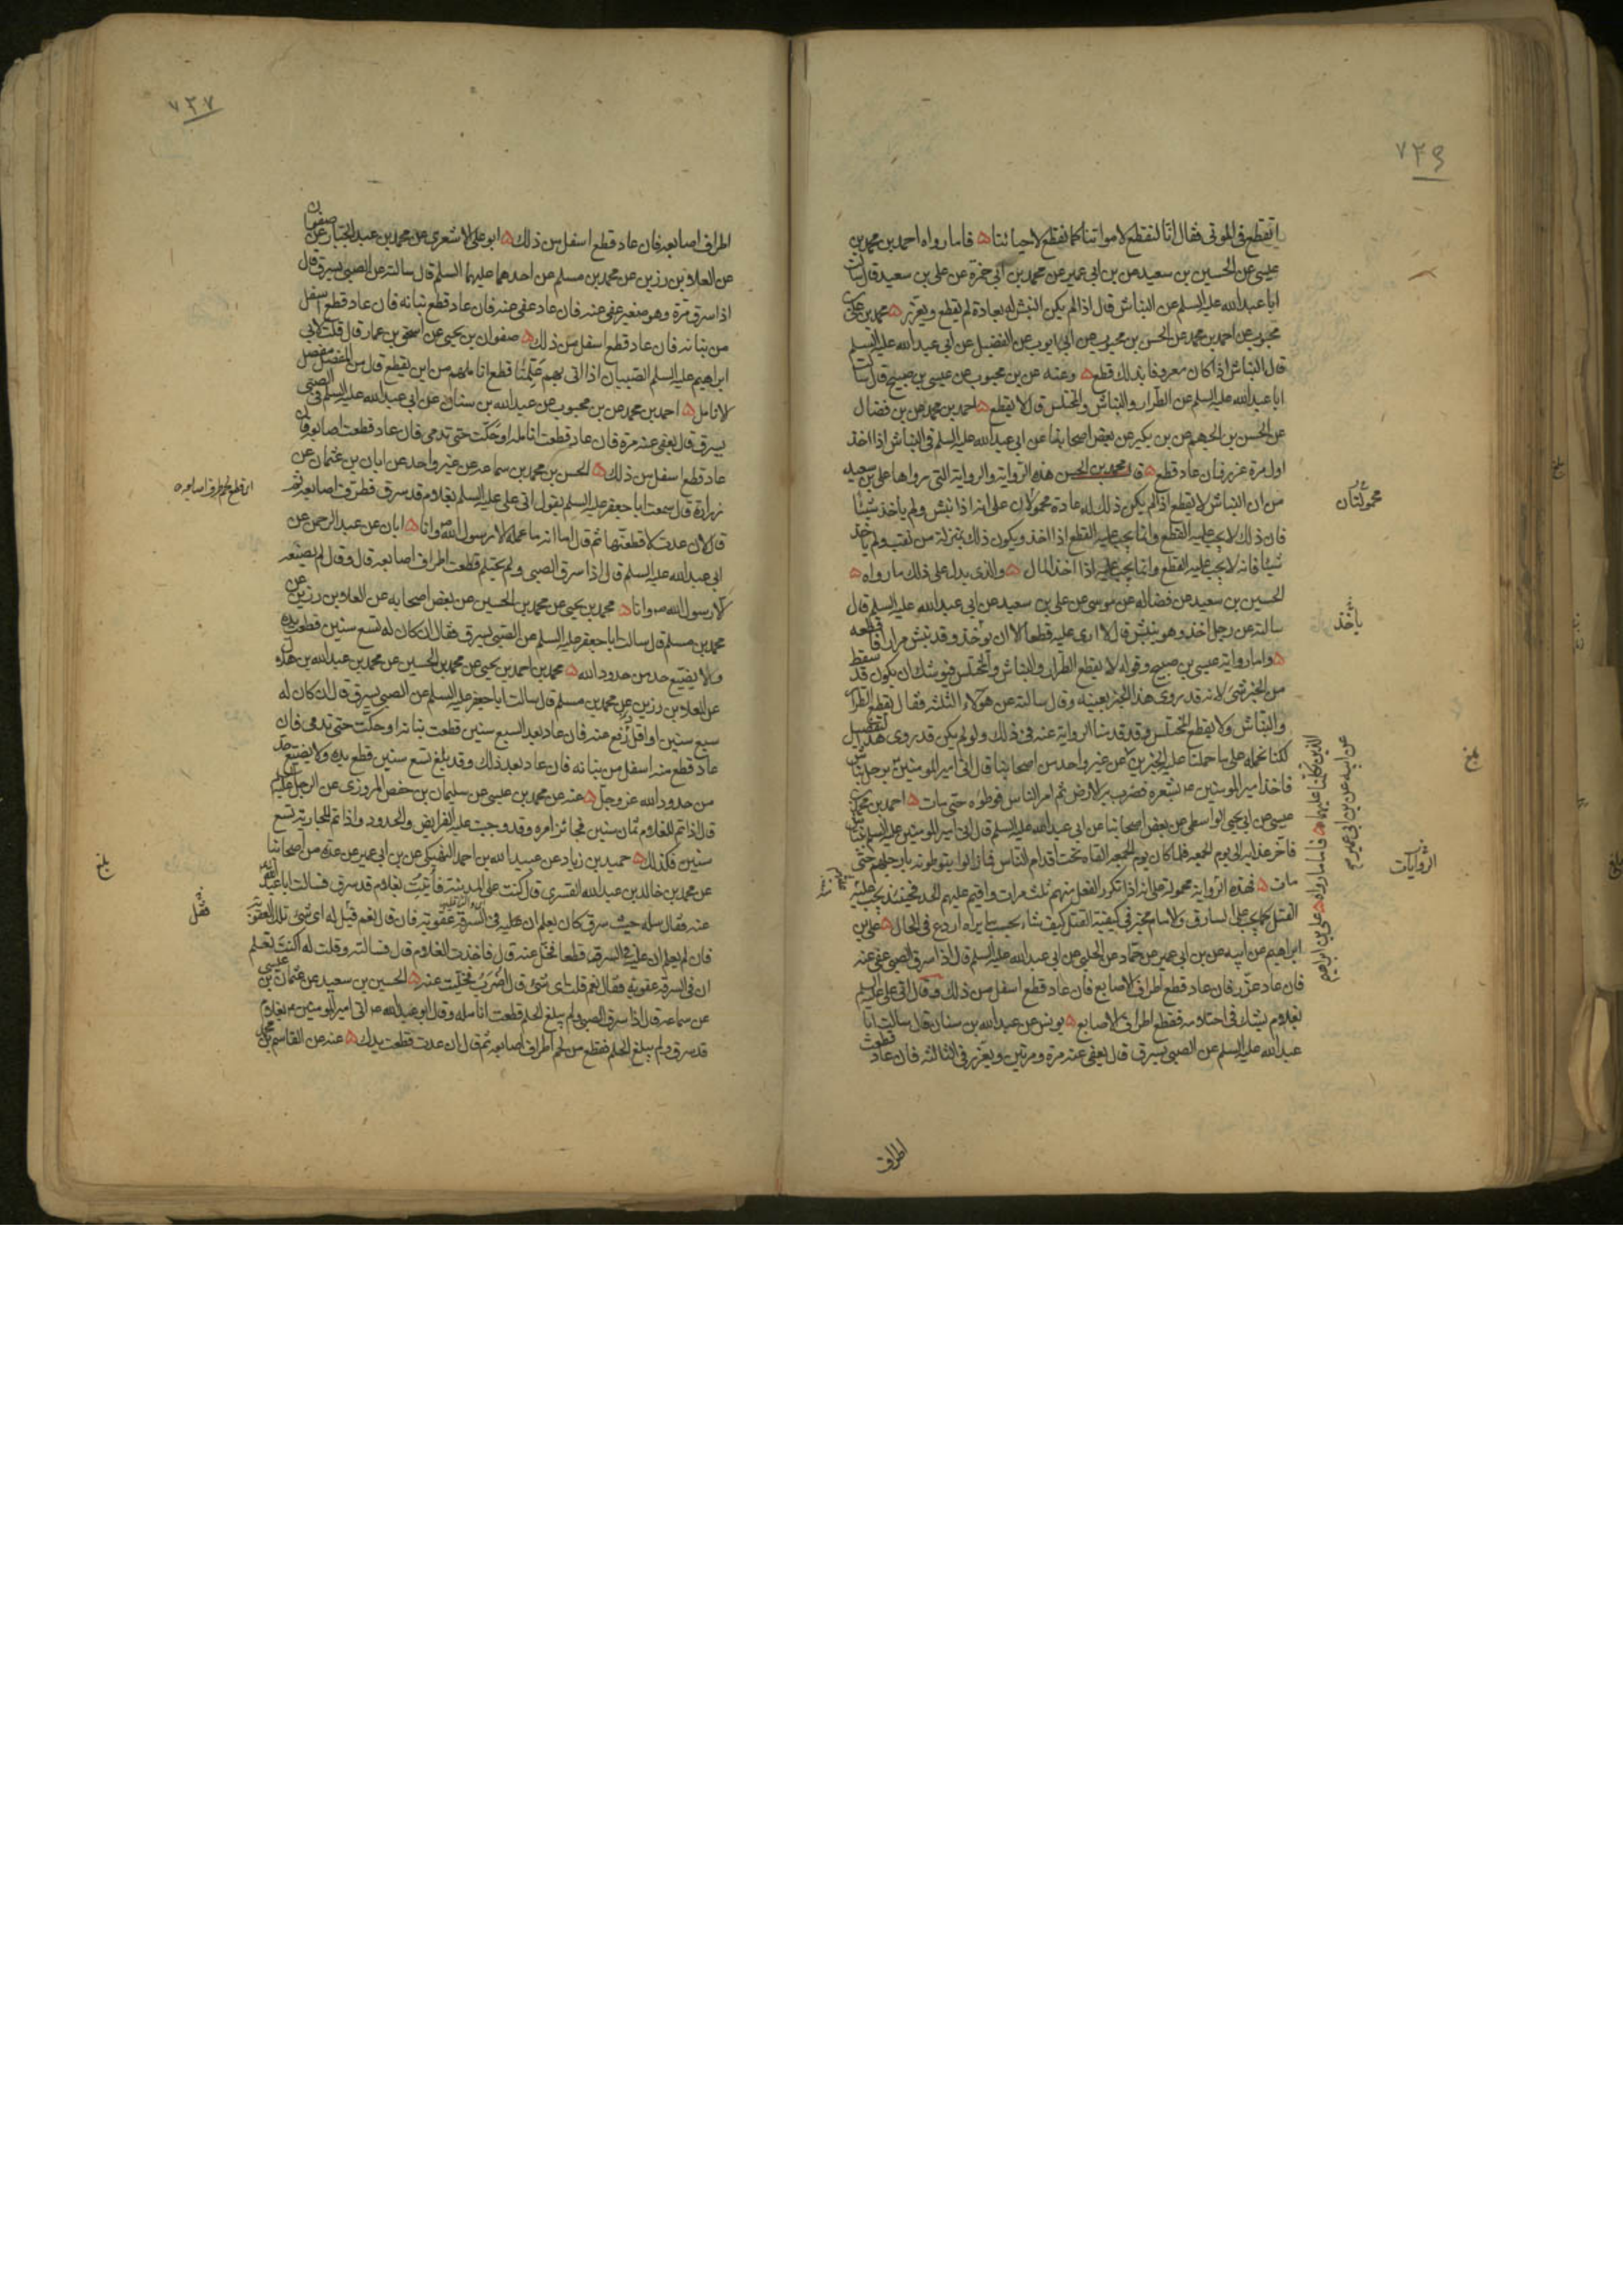 ٧٣٦
اتقطع في الموتى فقال انا لنقطع لامواتنا كما نقطع لاحيائنا فاما رواه احمد بن محمد بن
عيسى عن الحسين بن سعيد عن بن ابي عمير عن محمد بن ابي حمزة عن علي بن سعيد قال سالت
ابا عبدالله عليه السلم عن النباش قال اذا لم يكن النبش له بعادة لم يقطع ويعزر محمد بن علي بن
محبوب عن احمد بن محمد عن الحسن بن محبوب عن ابي ايوب عن الفضيل عن ابي عبد الله عليه السلم
قال النباش اذا كان معروفا بذلك قطع وعنه عن بن محبوب عن عيسى بن صبيح قال سالت
ابا عبدالله عليه السلم عن الطرار والنباش والمختلس قال لا يقطع احمد بن محمد عن بن فضال
عن الحسن بن الجهم عن بن بكير عن بعض اصحابنا عن ابي عبدالله عليه السلم في النباش اذا اخذ
اول مرة عزر فان عاد قطع قال محمد بن الحسن هذه الرواية والرواية التي رواها علي بن سعيد
من ان النباش لا يقطع اذا لم يكن ذلك له عادة محمولان على انه اذا نبش ولم ياخذ شيئا
فان ذلك لا يجب عليه القطع وانما يجب عليه القطع اذا اخذ ويكون ذلك بمنزلة من نقب ولم ياخذ
شيئا فانه لا يجب عليه القطع وانما يجب عليه اذا اخذ المال والذي يدل على ذلك ما رواه
الحسين بن سعيد عن فضاله عن موسى عن علي بن سعيد عن ابي عبدالله عليه السلم قال
سالته عن رجل اخذ وهو ينبش قال لا ارى عليه قطعا الا ان يؤخذ وقد نبش مرارا فاقطعه
واما رواية عيسى بن صبيح وقوله لا يقطع الطرار والنباش والمختلس فيوشك ان يكون قد سقط
من الخبر شئ لانه قد روى هذا الخبر بعينه وقال سالته عن هولاء الثلثه فقال يقطع الطرار
والنباش ولا يقطع المختلس وقد قدمنا الرواية عنه في ذلك ولو لم يكن قد روى هذا التفصيل
لكنا نحمله على ما حملنا عليه الخبرين عن غير واحد من اصحابنا قال اتى امير المومنين برجل نباش
فاخذ امير المومنين ع بشعره فضرب به الارض ثم امر الناس فوطؤه حتى مات احمد بن محمد بن
عيسى عن ابي يحيى الواسطي عن بعض اصحابنا عن ابي عبدالله عليه السلم قال اتى امير المومنين عليه السلم بنباش
فاخر عذابه الى يوم الجمعه فلما كان يوم الجمعه القاه تحت اقدام الناس فما زالوا يتوطونه بارجلهم حتى
مات فهذه الرواية محمولة على انه اذا تكرر الفعل منهم ثلث مرات واقيم عليهم الحد فحينئذ يجب عليه
القتل كما يجب على السارق والامام مخير في كيفية القتل كيف شاء بحسب ما يراه اردع في الحال علي بن
ابراهيم عن ابيه عن بن ابي عمير عن حماد عن الحلبي عن ابي عبدالله عليه السلم قال اذا سرق الصبي عفي عنه
فان عاد عزر فان عاد قطع اطراف الاصابع فان عاد قطع اسفل من ذلك وقال اتى علي عليه السلم
بغلام يشك في احتلامه فقطع اطراف الاصابع يونس عن عبدالله بن سنان قال سالت ابا
عبدالله عليه السلم عن الصبي يسرق قال يعفى عنه مرة ومرتين ويعزر في الثالثه فان عاد قطعت
محمولتان
ياخذ
الذين تكلمنا عليهما فاما ما رواه علي بن ابراهيم
عن ابيه عن بن ابي عمير
الروايات
بلغ
اطراف
٧٣٧
اطراف اصابعه فان عاد قطع اسفل من ذلك ابو علي الاشعري عن محمد بن عبد الجبار عن صفوان
عن العلاء بن رزين عن محمد بن مسلم عن احدهما عليهما السلم قال سالته عن الصبي يسرق قال
اذا سرق مرة وهو صغير عفي عنه فان عاد عفي عنه فان عاد قطع بنانه فان عاد قطع اسفل
من بنانه فان عاد قطع اسفل من ذلك صفوان بن يحيى عن اسحق بن عمار قال قلت لابي
ابراهيم عليه السلم الصبيان اذا اتى بهم علينا قطع اناملهم من اين يقطع قال من المفصل مفصل
الانامل احمد بن محمد عن بن محبوب عن عبدالله بن سنان عن ابي عبدالله عليه السلم في الصبي
يسرق قال يعفى عنه مرة فان عاد قطعت انامله او حكت حتى تدمى فان عاد قطعت اصابعه فان
عاد قطع اسفل من ذلك الحسن بن محمد بن سماعه عن غير واحد عن ابان بن عثمان عن
زرارة قال سمعت ابا جعفر عليه السلم يقول اتى علي عليه السلم بغلام قد سرق فطرف اصابعه ثم
قال لان عدت لاقطعنها ثم قال اما انه ما عمله الا رسول الله ص وانا ابان عن عبد الرحمن عن
ابي عبدالله عليه السلم قال اذا سرق الصبي ولم يحتلم قطعت اطراف اصابعه قال وقال لم يصنعه
الا رسول الله ص وانا محمد بن يحيى عن محمد بن الحسين عن بعض اصحابه عن العلاء بن رزين عن
محمد بن مسلم قال سالت ابا جعفر عليه السلم عن الصبي يسرق فقال ان كان له تسع سنين قطعت يده
ولا يضيع حد من حدود الله محمد بن احمد بن يحيى عن محمد بن الحسين عن محمد بن عبدالله بن هلال
عن العلاء بن رزين عن محمد بن مسلم قال سالت ابا جعفر عليه السلم عن الصبي يسرق قال ان كان له
سبع سنين او اقل رفع عنه فان عاد بعد السبع سنين قطعت بنانه او حكت حتى تدمى فان
عاد قطع منه اسفل من بنانه فان عاد بعد ذلك وقد بلغ تسع سنين قطع يده ولا يضيع حد
من حدود الله عز وجل عنه عن محمد بن عيسى عن سليمان بن حفص المروزي عن الرجل عليه السلم
قال اذا تم للغلام ثمان سنين فجائز امره وقد وجبت عليه الفرايض والحدود واذا تم للجارية تسع
سنين فكذلك حميد بن زياد عن عبيد الله بن احمد النهيكي عن بن ابي عمير عن عدة من اصحابنا
عن محمد بن خالد بن عبدالله القسري قال كنت على المدينة فاتيت بغلام قد سرق فسالت ابا عبدالله
عنه فقال سله حيث سرق كان يعلم ان عليه في السرقة عقوبة فان قال نعم قيل له اي شئ تلك العقوبة
فان لم يعلم ان عليه في السرقة قطعا فخل عنه قال فاخذت الغلام قال فسالته وقلت له اكنت تعلم
ان في السرقة عقوبة فقال نعم قلت اي شئ قال الضرب فخليت عنه الحسين بن سعيد عن عثمان بن عيسى
عن سماعه قال اذا سرق الصبي ولم يبلغ الحلم قطعت انامله وقال ابو عبدالله ع اتى امير المومنين ع بغلام
قد سرق ولم يبلغ الحلم فقطع من لحم اطراف اصابعه ثم قال ان عدت قطعت يدك عنه عن القاسم بن محمد
بلغ